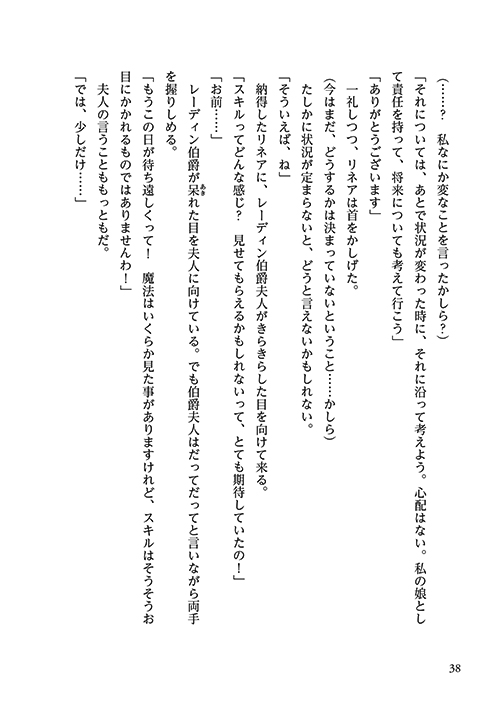 （……？　私なにか変なことを言ったかしら？）
「それについては、あとで状況が変わった時に、それに沿って考えよう。心配はない。私の娘とし
て責任を持って、将来についても考えて行こう」
「ありがとうございます」
　一礼しつつ、リネアは首をかしげた。
（今はまだ、どうするかは決まっていないということ……かしら）
　たしかに状況が定まらないと、どうと言えないかもしれない。
「そういえば、ね」
　納得したリネアに、レーディン伯爵夫人がきらきらした目を向けて来る。
「スキルってどんな感じ？　見せてもらえるかもしれないって、とても期待していたの！」
「お前……」
　レーディン伯爵が呆れた目を夫人に向けている。でも伯爵夫人はだってだってと言いながら両手
を握りしめる。
「もうこの日が待ち遠しくって！　魔法はいくらか見た事がありますけれど、スキルはそうそうお
目にかかれるものではありませんわ！」
　夫人の言うことももっともだ。
「では、少しだけ……」
38